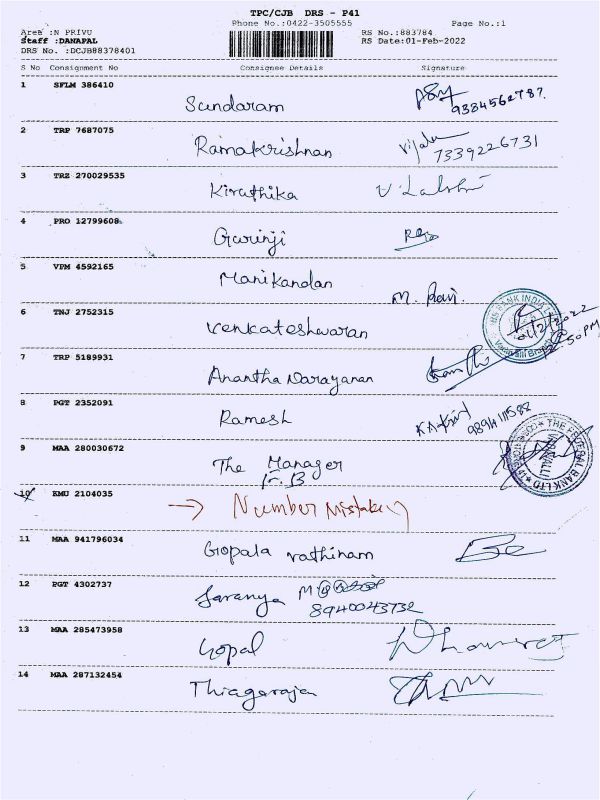 TPC/CJB DRS - P41
Phone No.:0422-3505555 Page No.:1
Area :N PRIVU RS No.:883784
Staff :DANAPAL RS Date:01-Feb-2022
DRS No. :DCJB88378401
S No Consignment No Consignee Details Signature
1 SFLM 386410
Sundaram 9384562787.
2 TRP 7687075
Ramakrishnan 7339226731
3 TRZ 270029535
Kiruthika V. Lakshmi
4 PRO 12799608
Gurinji
5 VPM 4592165
Manikandan M. Ravi.
6 TNJ 2752315
Venkateshwaran
7 TRP 5189931
Anantha Narayanan
8 PGT 2352091
Ramesh
9 MAA 280030672
The Manager
10 KMU 2104035
Number Mistake
11 MAA 941796034
Gopala rathinam
12 PGT 4302737
Saranya
8940043732
13 MAA 285473958
Gopal
14 MAA 287132454
Thiagaraja